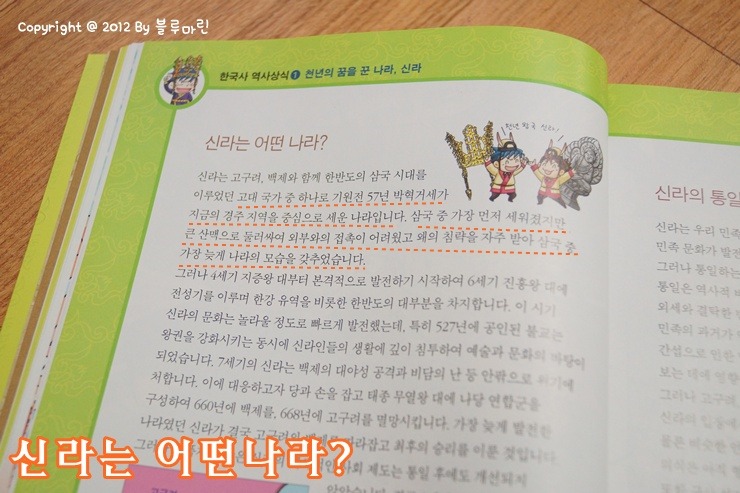 Copyright @ 2012 By 블루마린
한국사 역사상식 1 천년의 꿈을 꾼 나라, 신라
천년 왕국 신라!
신라는 어떤 나라?
신라는 고구려, 백제와 함께 한반도의 삼국 시대를
이루었던 고대 국가 중 하나로 기원전 57년 박혁거세가
지금의 경주 지역을 중심으로 세운 나라입니다. 삼국 중 가장 먼저 세워졌지만
큰 산맥으로 둘러싸여 외부와의 접촉이 어려웠고 왜의 침략을 자주 받아 삼국 중
가장 늦게 나라의 모습을 갖추었습니다.
그러나 4세기 지증왕 대부터 본격적으로 발전하기 시작하여 6세기 진흥왕 대에
전성기를 이루며 한강 유역을 비롯한 한반도의 대부분을 차지합니다. 이 시기
신라의 문화는 놀라울 정도로 빠르게 발전했는데, 특히 527년에 공인된 불교는
왕권을 강화시키는 동시에 신라인들의 생활에 깊이 침투하여 예술과 문화의 바탕이
되었습니다. 7세기의 신라는 백제의 대야성 공격과 비담의 난 등 안팎으로 위기에
처합니다. 이에 대응하고자 당과 손을 잡고 태종 무열왕 대에 나당 연합군을
구성하여 660년에 백제를, 668년에 고구려를 멸망시킵니다. 가장 늦게 발전한
나라였던 신라가 결국 고구려와 최후의 승리를 이룬 것입니다
제도는 통일 후에도 개선되지
신라의 통일
신라는 우리 민족
민족 문화가 발전
그러나 통일하는
통일은 역사적
외세와 결탁한
민족의 과거가
간섭으로 인한
보는 데에 영향
그러나 고구려
신라의 입장에
물론 비슷한 언
의식은 아직 형
신라는 어떤나라?